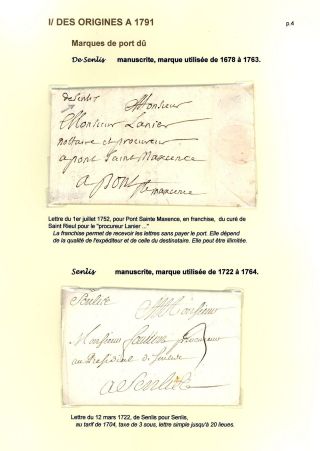 I/ DES ORIGINES A 1791
p.4
Marques de port dû
De Senlis manuscrite, marque utilisée de 1678 à 1763.
de Senlis Monsieur
Monsieur Lanier
nottaire et procureur
a pont Sainte Maxence
a pont
Ste maxence
Lettre du 1er juillet 1752, pour Pont Sainte Maxence, en franchise, du curé de
Saint Rieul pour le "procureur Lanier..."
La franchise permet de recevoir les lettres sans payer le port. Elle dépend
de la qualité de l'expéditeur et de celle du destinataire. Elle peut être illimitée.
Senlis manuscrite, marque utilisée de 1722 à 1764.
Senlis Monsieur
Monsieur procureur
au de Senlis
3
a Senlis
Lettre du 12 mars 1722, de Senlis pour Senlis,
au tarif de 1704, taxe de 3 sous, lettre simple jusqu'à 20 lieues.